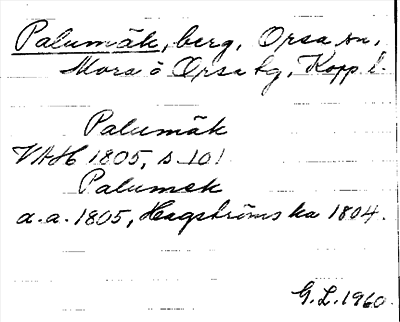 Palumäk, berg, Orsa sn,
Mora o Orsa tg, Kopp l.
Palumäk
VAH 1805, s 101
Palumek
a.a. 1805, Hagströms ka 1804.
G.L. 1960